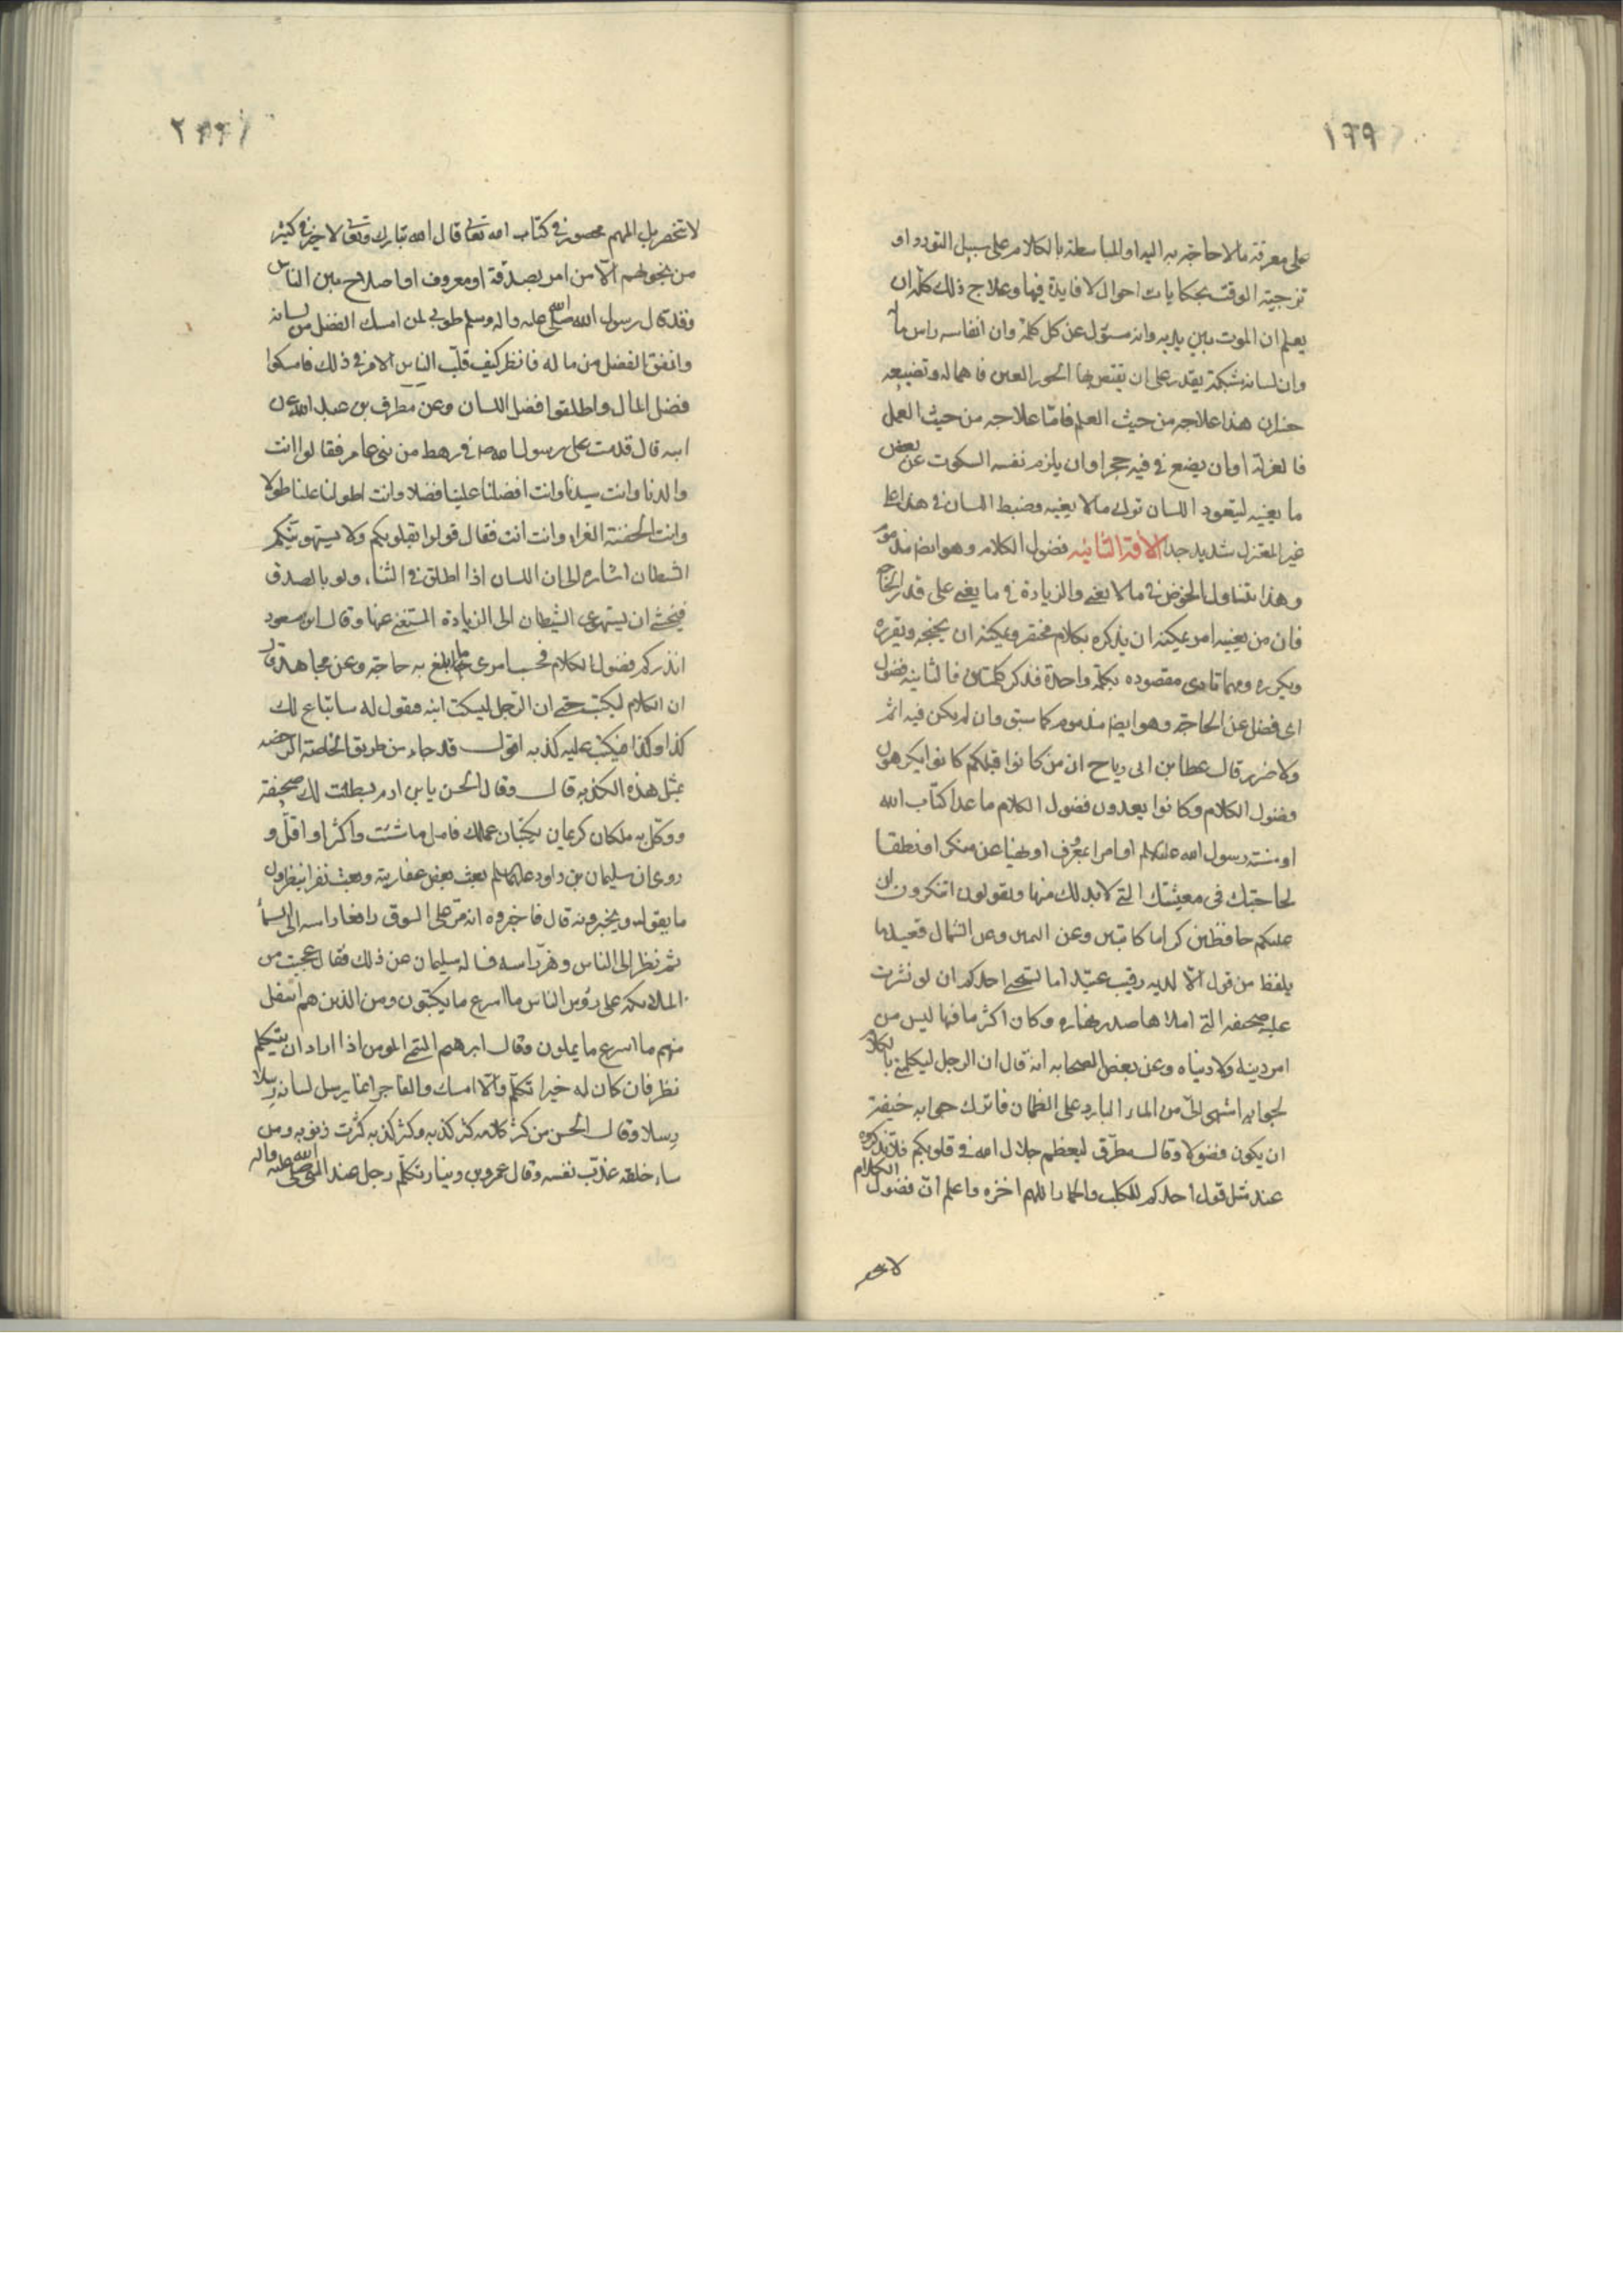 ١٩٩
على معرفة ما لا حاجة به اليه او المباسطة بالكلام على سبيل التودد او
تزجية الوقت بحكايات احوال لا فايدة فيها وعلاج ذلك كله ان
يعلم ان الموت بين يديه وانه مسؤل عن كل كلمة وان انفاسه راس ماله
وان لسانه شبكة يقدر على ان يقتنص بها الحور العين فاهماله وتضييعه
خسران هذا علاجه من حيث العلم فامّا علاجه من حيث العمل
فالعزلة او ان يضع في فيه حجرا وان يلزم نفسه السكوت عن بعض
ما يعنيه ليتعود اللسان ترك ما لا يعنيه وضبط اللسان في هذا على
غير المعتزل شديد جدا الآفة الثانيه فضول الكلام وهو ايضا مذموم
وهذا يتناول الخوض في ما لا يعني والزيادة في ما يعني على قدر الحاجة
فان من يعنيه امر يمكنه ان يذكره بكلام مختصر ويمكنه ان يجنحه ويقرره
ويكرره ومهما تادى مقصوده بكلمة واحدة فذكر كلمتين فالثانية فضول
اى فضل عن الحاجة وهو ايضا مذموم كما سبق وان لم يكن فيه اثم
ولا ضرر قال عطا بن ابى رباح ان من كانوا قبلكم كانوا يكرهون
فضول الكلام وكانوا يعدون فضول الكلام ما عدا كتاب الله
او سنة رسول الله عليه السلم او امرا بمعرف او نهيا عن منكر او نطقا
لحاجتك فى معيشتك التي لا بد لك منها ويقولون اتنكرون ان
عليكم حافظين كراما كاتبين وعن اليمين وعن الشمال قعيد ما
يلفظ من قول الّا لديه رقيب عتيد اما يستحيي احدكم ان لو نشرت
عليه صحيفه التي املاها صدر نهاره وكان اكثر ما فيها ليس من
امر دينه ولا دنياه وعن بعض الصحابه انه قال ان الرجل ليكلمني بالكلام
لجوابه اشهى اليّ من الماء البارد على الظمان فاترك جوابه خيفة
ان يكون فضولا وقال مطرّف ليعظم جلال الله في قلوبكم فلا تذكروه
عند مثل قول احدكم للكلب والحمار اللهم اخزه واعلم انّ فضول الكلام
لا تنحصر
٢
لا تنحصر بل المهم محصور في كتاب الله تعالى قال الله تبارك وتعالى لا خير في كثير
من نجويهم الّا من امر بصدقة او معروف او اصلاح بين الناس
وقد قال رسول الله صلى الله عليه واله وسلم طوبى لمن امسك الفضل من لسانه
وانفق الفضل من ماله فانظر كيف قلّب الناس الامر في ذلك فامسكوا
فضل المال واطلقوا فضل اللسان وعن مطرف بن عبد الله عن
ابيه قال قدمت على رسول الله ص في رهط من بنى عامر فقالوا انت
والدنا وانت سيدنا وانت افضلنا علينا فضلا وانت اطولنا علينا طولا
وانت الجفنة الغراء وانت انت فقال قولوا بقولكم ولا يستهوينّكم
الشيطان اشاره الى ان اللسان اذا اطلق في الثناء ولو بالصدق
فيخشى ان يستهوى الشيطان الى الزيادة المستغنى عنها وقال ابن مسعود
انذركم فضول الكلام فحسب امرى ما بلغ به حاجته وعن مجاهد قال
ان الكلام ليكتب حتى ان الرّجل ليسكت ابنه فيقول له سابتاع لك
كذا وكذا فيكتب عليه كذبه اقول قد جاء من طريق الخاصة الرخصه
بمثل هذه الكذبه قال وقال الحسن يابن ادم بسطت لك صحيفة
ووكّل به ملكان كريمان يكتبان عملك فاعمل ما شئت واكثر او اقلّ و
روى ان سليمان بن داود عليهما السلم بعث بعض عفاريته وبعث نفرا ينظرون
ما يقول ويخبرونه قال فاخبروه انه مرّ على السوق رافعا راسه الى السماء
ثم نظر الى الناس وهزّ راسه فساله سليمان عن ذلك فقال عجبت من
الملائكه على رؤس الناس ما اسرع ما يكتبون ومن الذين هم اسفل
منهم ما اسرع ما يملون وقال ابرهيم التيمي المومن اذا اراد ان يتكلم
نظر فان كان له خيرا تكلّم والّا امسك والفاجر انما يرسل لسانه رسلا
رسلا وقال الحسن من كثر كلامه كثر كذبه وكثر كذبه كثرت ذنوبه ومن
ساء خلقه عذّب نفسه وقال عمرو بن دينار تكلّم رجل عند النبي صلى الله عليه واله